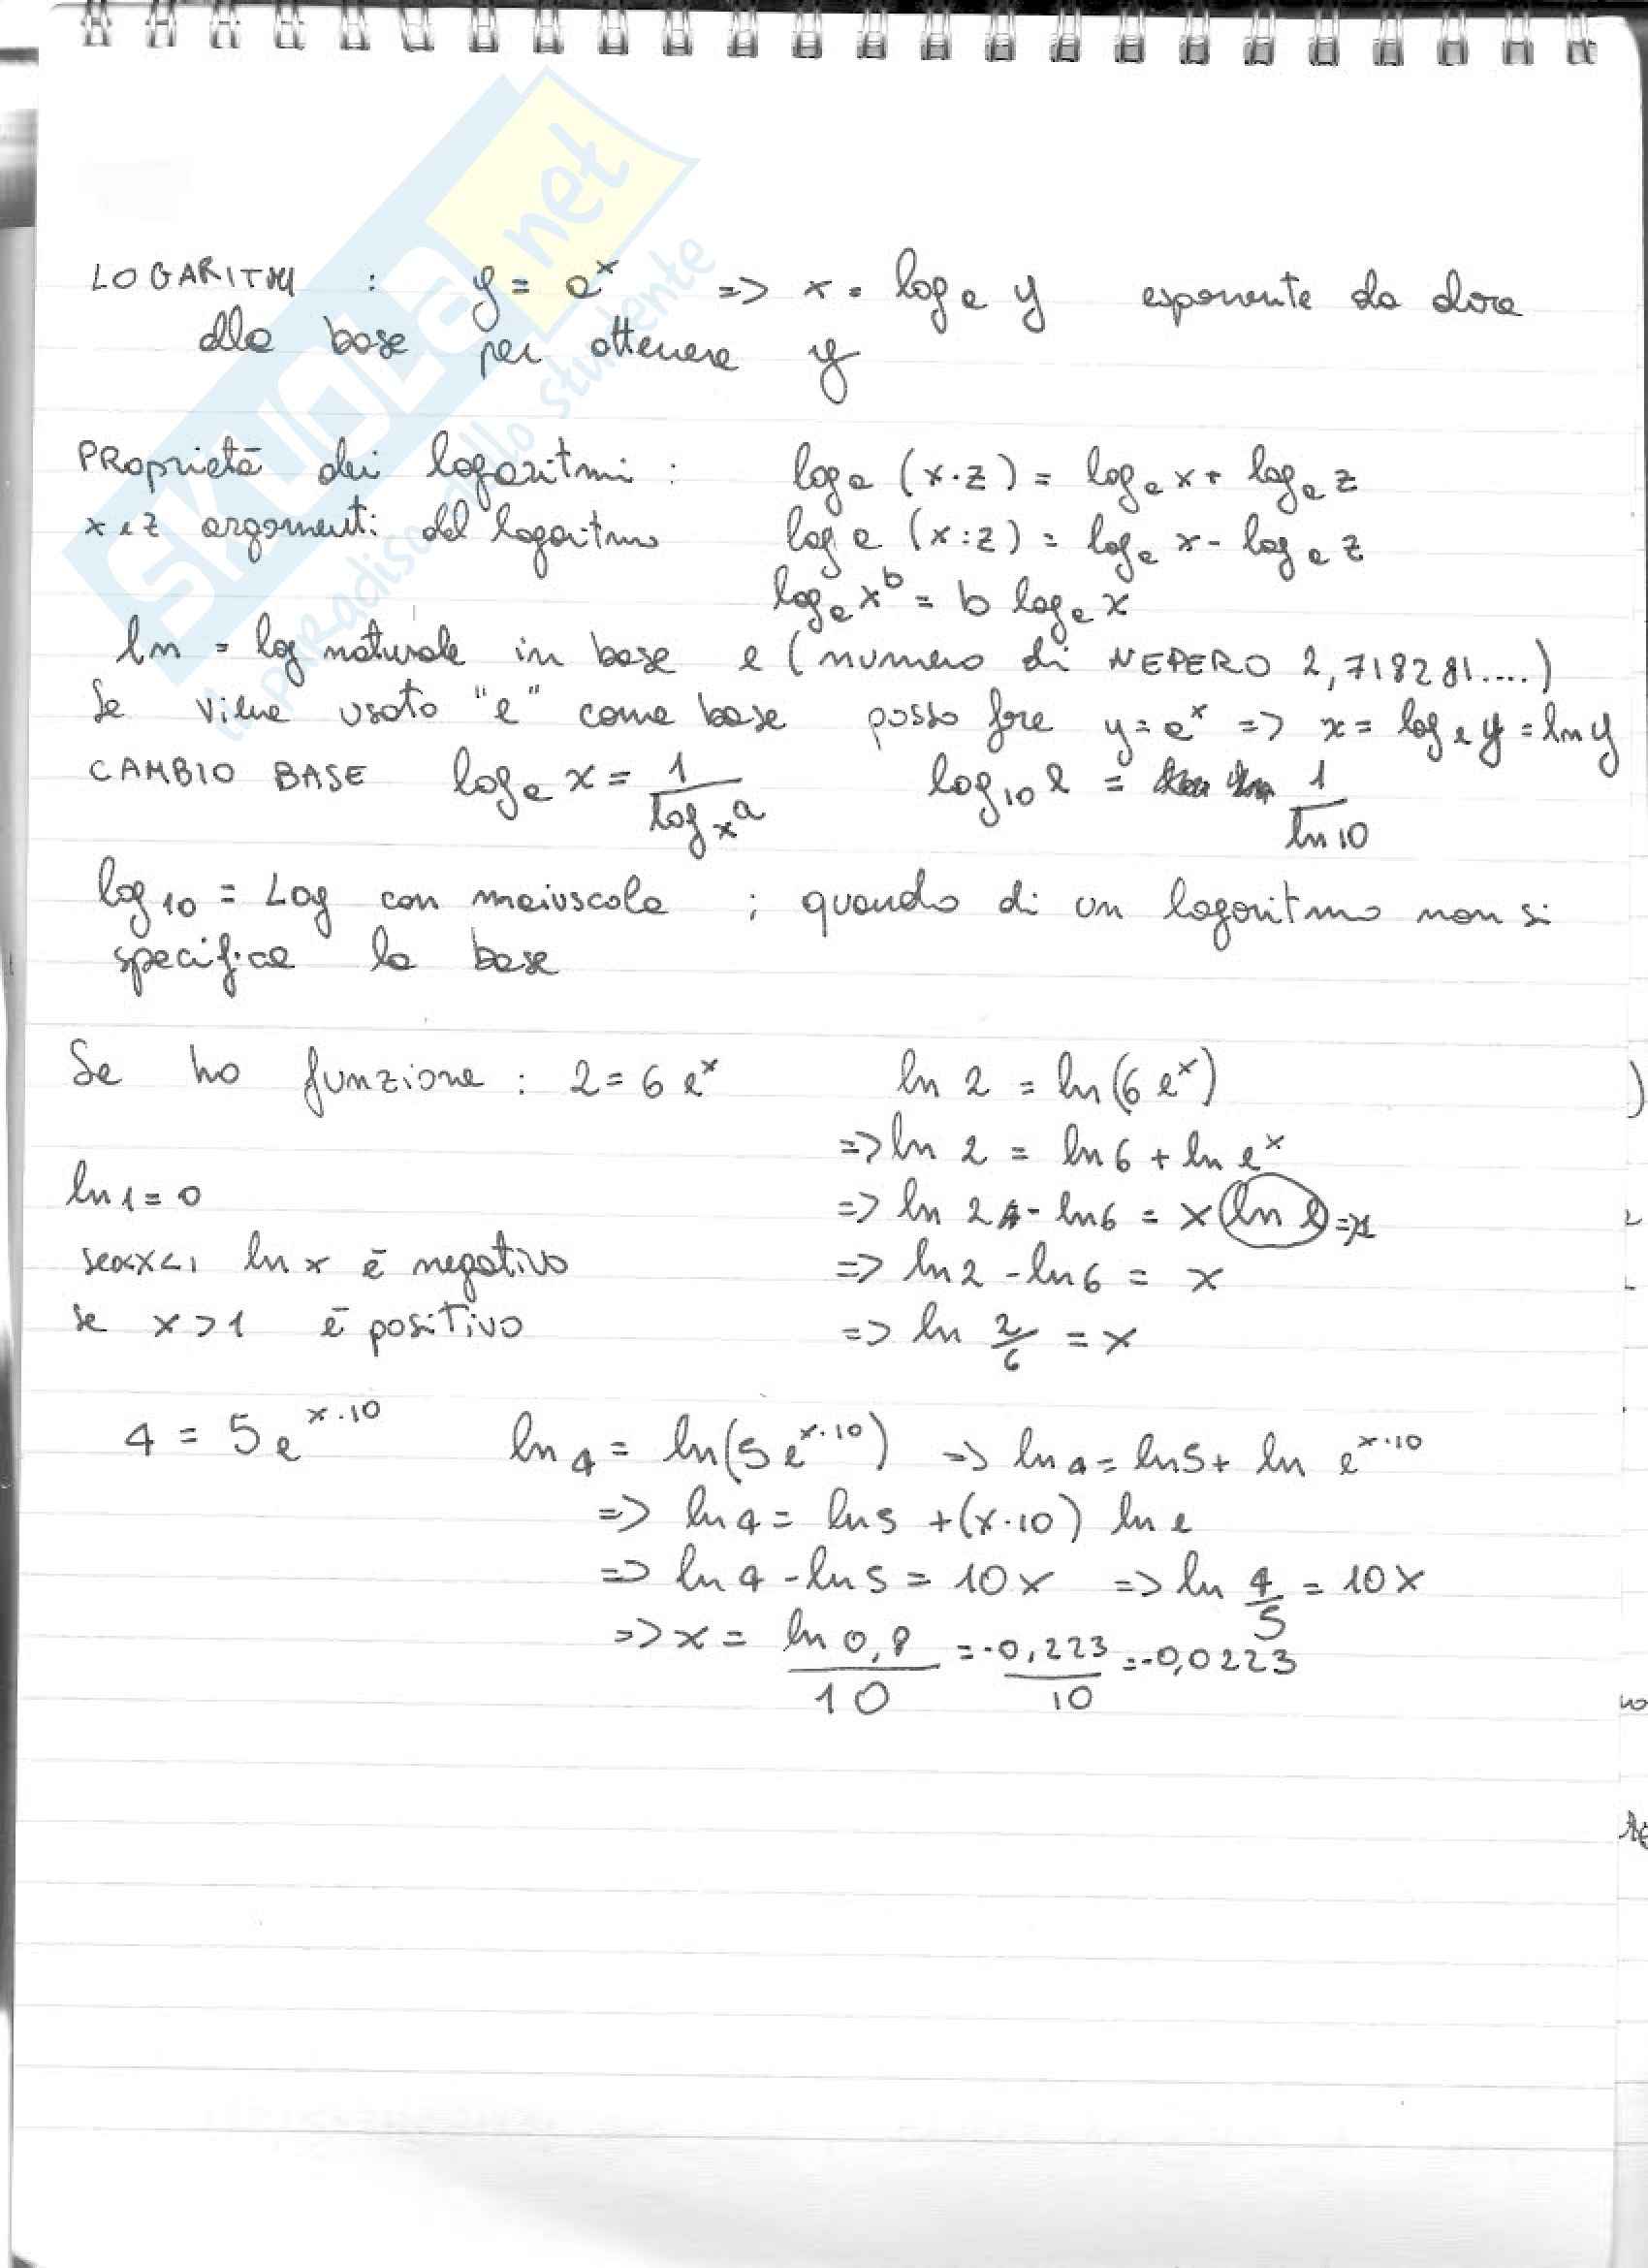 SKUOLA.net
il paradiso dello studente
LOGARITMI : y = aˣ => x = logₐ y esponente da dare
alla base per ottenere y
PROprietà dei logaritmi : logₐ (x·z) = logₐ x + logₐ z
x e z argomenti del logaritmo logₐ (x:z) = logₐ x - logₐ z
logₐ xᵇ = b logₐ x
ln = log naturale in base e (numero di NEPERO 2,718281....)
Se viene usato "e" come base posso fare y = eˣ => x = logₑ y = ln y
CAMBIO BASE logₐ x = 1/logₓ a log₁₀ e = 1/ln 10
log₁₀ = Log con maiuscola ; quando di un logaritmo non si
specifica la base
Se ho funzione : 2 = 6 eˣ ln 2 = ln(6 eˣ)
=> ln 2 = ln 6 + ln eˣ
ln 1 = 0 => ln 2 - ln 6 = x ln e = 1
se 0<x<1 ln x è negativo => ln 2 - ln 6 = x
se x > 1 è positivo => ln 2/6 = x
4 = 5 e^(x·10) ln 4 = ln(5 e^(x·10)) => ln 4 = ln 5 + ln e^(x·10)
=> ln 4 = ln 5 + (x·10) ln e
=> ln 4 - ln 5 = 10x => ln 4/5 = 10x
=> x = ln 0,8/10 = -0,223/10 = -0,0223